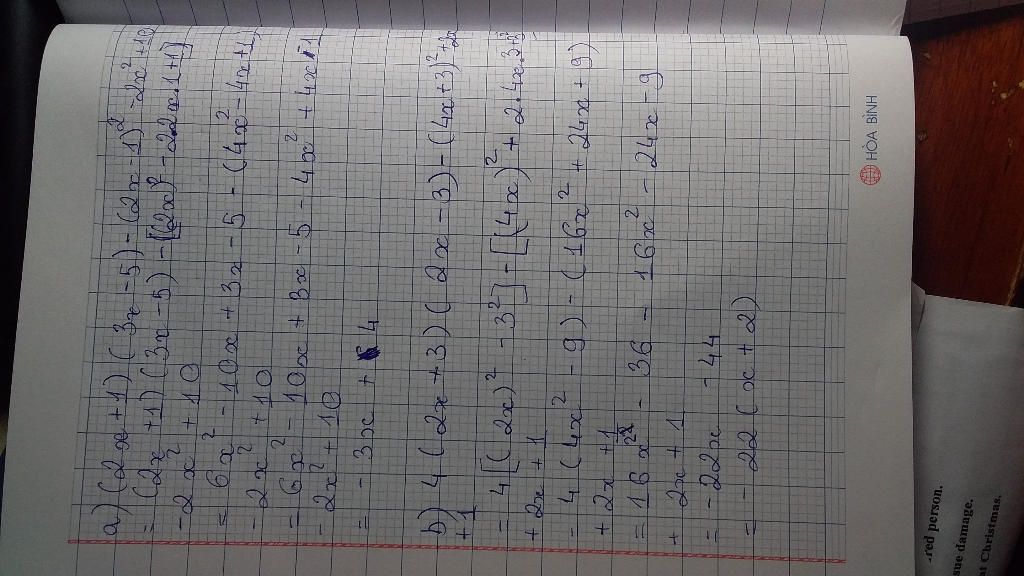 a) (2x+1)(3x-5) - (2x-1)² - 2x² + 10
= (2x+1)(3x-5) - [(2x)² - 2.2x.1+1]
- 2x² + 10
= 6x² - 10x + 3x - 5 - (4x² - 4x + 1)
- 2x² + 10
= 6x² - 10x + 3x - 5 - 4x² + 4x - 1
- 2x² + 10
= - 3x + 4
b) 4(2x+3)(2x-3) - (4x+3)² + 2x
+ 1
= 4[(2x)² - 3²] - [(4x)² + 2.4x.3+3²]
+ 2x + 1
= 4(4x² - 9) - (16x² + 24x + 9)
+ 2x + 1
= 16x² - 36 - 16x² - 24x - 9
+ 2x + 1
= - 22x - 44
= - 22(x+2)
HÒA BÌNH
red person.
sue damage.
at Christmas.